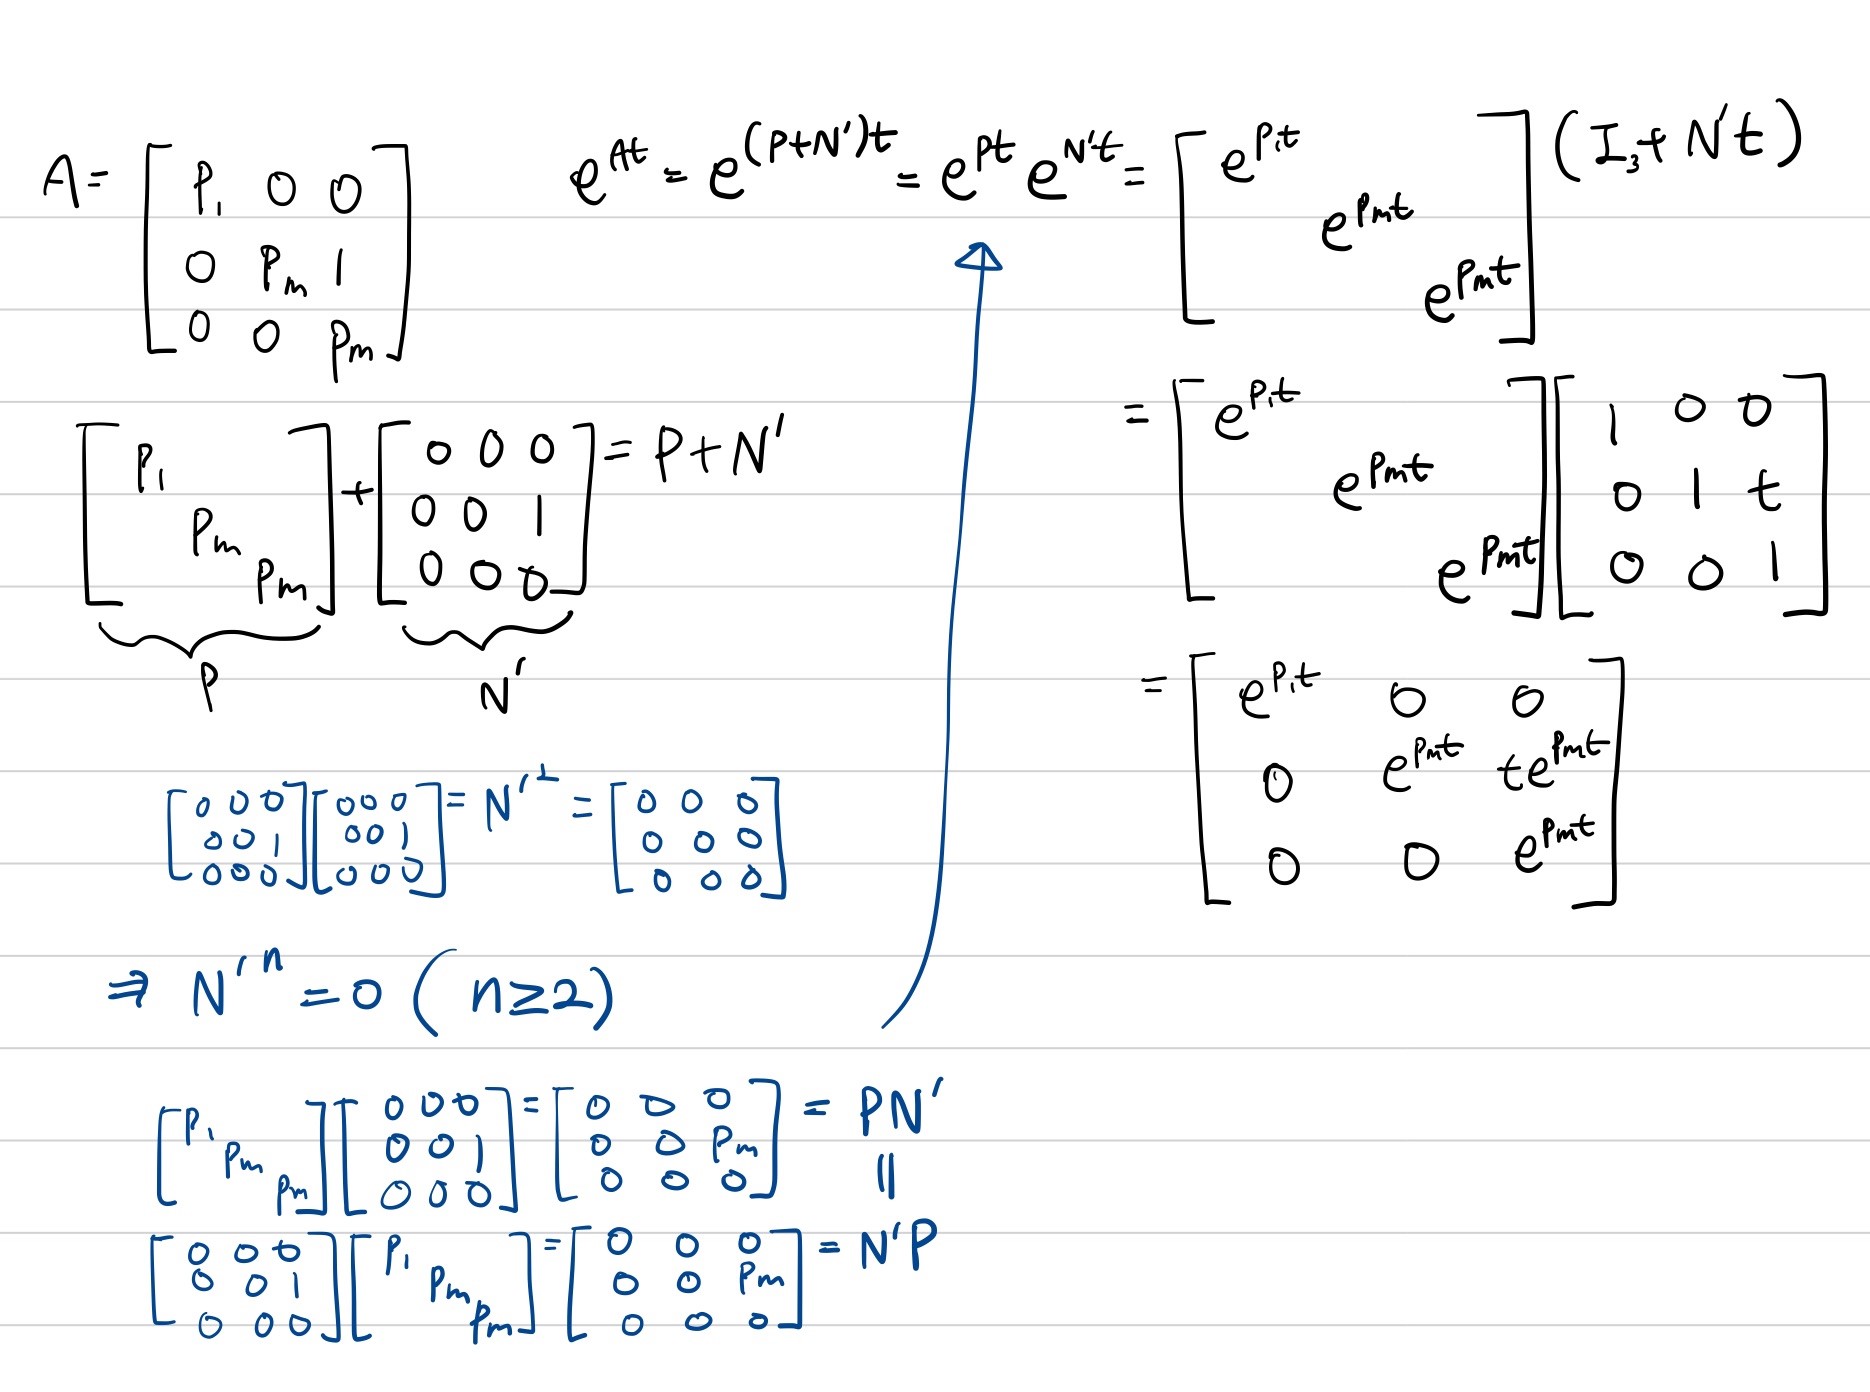 A = [ P₁ 0 0
0 Pₘ 1
0 0 Pₘ ]
[ P₁
Pₘ
Pₘ ] + [ 0 0 0
0 0 1
0 0 0 ] = P + N′
P N′
[ 0 0 0
0 0 1
0 0 0 ] [ 0 0 0
0 0 1
0 0 0 ] = N′² = [ 0 0 0
0 0 0
0 0 0 ]
⇒ N′ⁿ = 0 ( n ≥ 2 )
[ P₁
Pₘ
Pₘ ] [ 0 0 0
0 0 1
0 0 0 ] = [ 0 0 0
0 0 Pₘ
0 0 0 ] = PN′
||
[ 0 0 0
0 0 1
0 0 0 ] [ P₁
Pₘ
Pₘ ] = [ 0 0 0
0 0 Pₘ
0 0 0 ] = N′P
e^{At} = e^{(P+N′)t} = e^{Pt} e^{N′t} = [ e^{P₁t}
e^{Pₘt}
e^{Pₘt} ] ( I₃ + N′t )
= [ e^{P₁t}
e^{Pₘt}
e^{Pₘt} ] [ 1 0 0
0 1 t
0 0 1 ]
= [ e^{P₁t} 0 0
0 e^{Pₘt} te^{Pₘt}
0 0 e^{Pₘt} ]